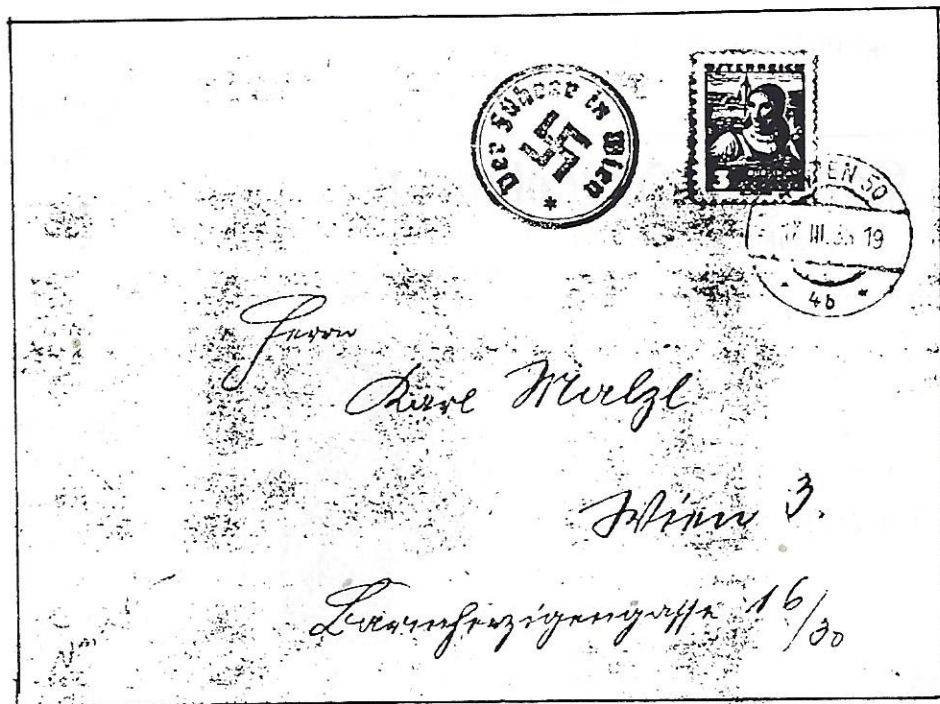 Der Führer in Wien
*
ÖSTERREICH
3
WIEN 50
III. 19
* 4b *
Herrn
Karl Malzl
Wien 3.
Barmherzigengasse 16/30